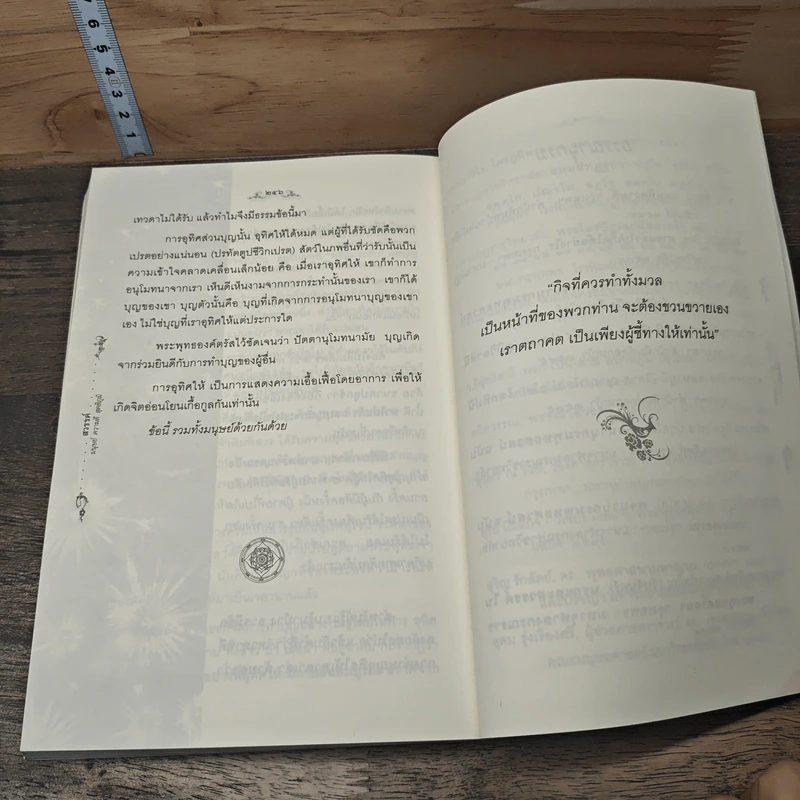 7
6
5
4
3
2
1
๒๔๖
เทวดาไม่ได้รับ แล้วทำไมจึงมีธรรมข้อนี้มา
การอุทิศส่วนบุญนั้น อุทิศให้ได้หมด แต่ผู้ที่ได้รับชัดคือพวก
เปรตอย่างแน่นอน (ปรทัตตูปชีวิกเปรต) สัตว์ในภพอื่นที่ว่ารับนั้นเป็น
ความเข้าใจคลาดเคลื่อนเล็กน้อย คือ เมื่อเราอุทิศให้ เขาก็ทำการ
อนุโมทนาจากเรา เห็นดีเห็นงามจากการกระทำนั้นของเรา เขาก็ได้
บุญของเขา บุญตัวนั้นคือ บุญที่เกิดจากการอนุโมทนาบุญของเขา
เอง ไม่ใช่บุญที่เราอุทิศให้แต่ประการใด
พระพุทธองค์ตรัสไว้ชัดเจนว่า ปัตตานุโมทนามัย บุญเกิด
จากร่วมยินดีกับการทำบุญของผู้อื่น
การอุทิศให้ เป็นการแสดงความเอื้อเฟื้อโดยอาการ เพื่อให้
เกิดจิตอ่อนโยนเกื้อกูลกันเท่านั้น
ข้อนี้ รวมทั้งมนุษย์ด้วยกันด้วย
"กิจที่ควรทำทั้งมวล
เป็นหน้าที่ของพวกท่าน จะต้องขวนขวายเอง
เราตถาคต เป็นเพียงผู้ชี้ทางให้เท่านั้น"